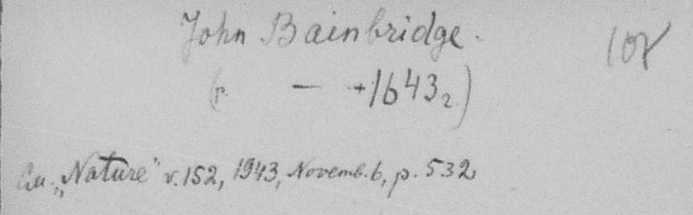 John Bainbridge.
108
(р. — +1643₂)
См. „Nature" v. 152, 1943, Novemb. 6, p. 532